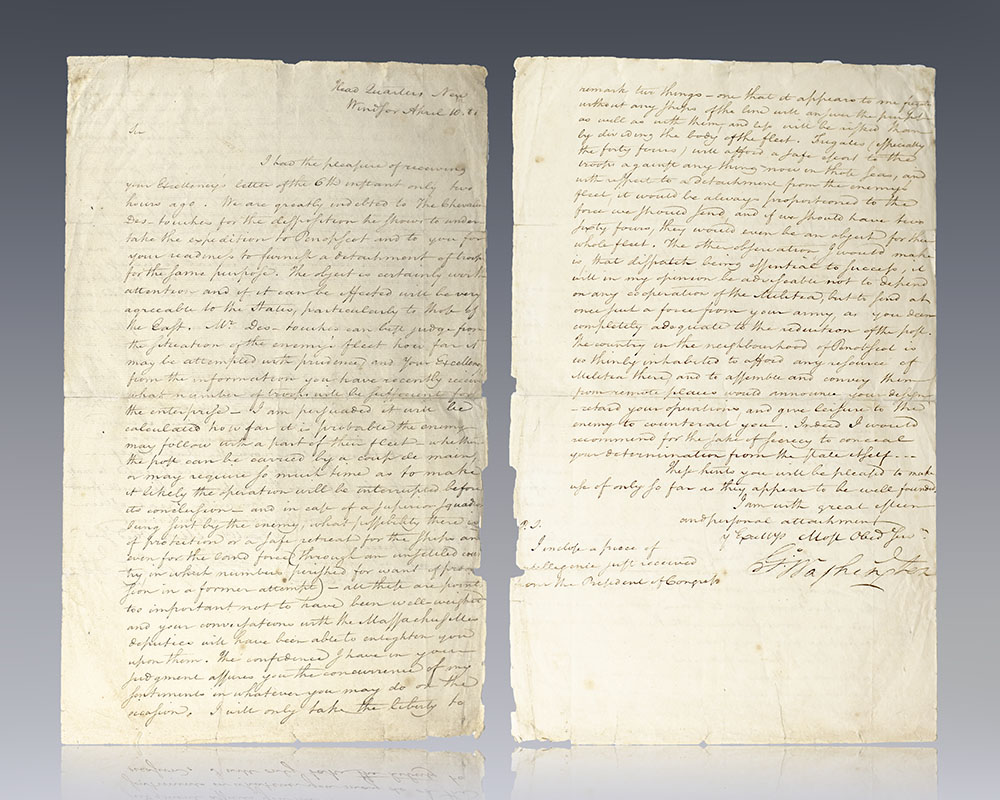 Head Quarters New
Windsor April 10. 81
Sir
I had the pleasure of receiving
your Excellencys letter of the 6th instant only two
hours ago. We are greatly indebted to The Chevalier
Des-touches for the disposition he shows to under
take the expedition to Penobscot and to you for
your readiness to furnish a detachment of troops
for the same purpose. The object is certainly worth
attention and if it can be effected will be very
agreeable to the States, particularly to those of
the East. Mr Des-touches can best judge from
the situation of the enemy's fleet how far it
may be attempted with prudence, and Your Excellency
from the information you have recently received
what number of troops will be sufficient for
the enterprise - I am persuaded it will be
calculated how far it is probable the enemy
may follow with a part of their fleet whether
the post can be carried by a coup de main,
or may require so much time as to make
it likely the operation will be interrupted before
its conclusion and in case of a superior squadron
being sent by the enemy, what possibility there is
of protection or a safe retreat for the ships and
even for the land force (through an unsettled coun
try in which numbers perished for want of provi
sion in a former attempt) - all these are points
too important not to have been well-weighed
and your conversations with the Massachusettes
deputies will have been able to enlighten you
upon them. The confidence I have in your
judgment assures you the concurrence of my
sentiments in whatever you may do on the
occasion. I will only take the liberty to
remark two things - one that it appears to me frigates
without any ships of the line will answer the purpose
as well as with them and less will be risked than
by dividing the body of the fleet. Frigates (especially
the forty fours) will afford a safe escort to the
troops against any thing now in those seas, and
with respect to a detachment from the enemy's
fleet, it would be always proportioned to the
force we should send, and if we should have two
sixty fours, they would even be an object for their
whole fleet. The other observation I would make
is that dispatch being essential to success, it
will in my opinion be adviseable not to depend
on any cooperation of the Miletea, but to send at
once such a force from your army as you deem
completely adequate to the reduction of the post.
The country in the neighbourhood of Penobscot is
too thinly inhabited to afford any resource of
Miletea there, and to assemble and convey them
from remote places would announce your design
- retard your operations and give leisure to the
enemy to counteract you. Indeed I would
recommend for the sake of secrecy to conceal
your determination from the state itself. --
These hints you will be pleased to make
use of only so far as they appear to be well founded
I am with great esteem
and personal attachment
Yr Excellys Most Obed Ser
Go Washington
P.S.
I inclose a piece of
intelligence just received
from the President of Congress